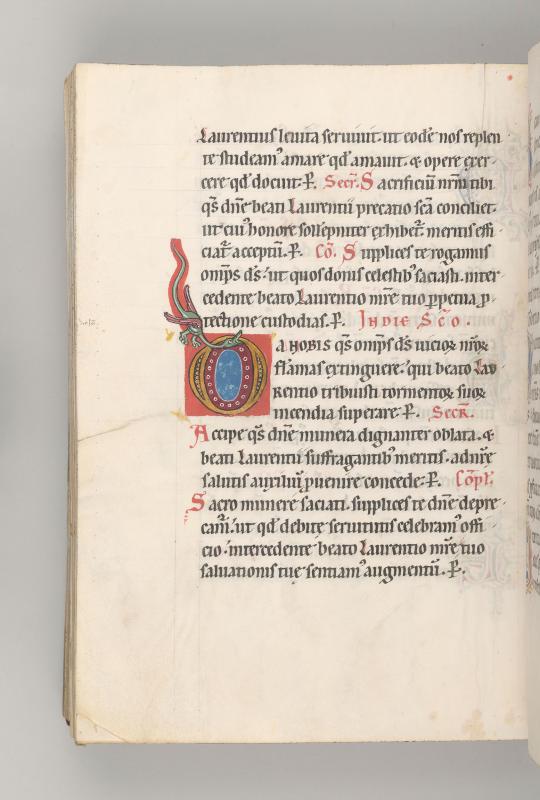 Laurentius levita servivit. ut eodē nos replen
te studeam' amare qđ amavit. & opere exer-
cere qđ docuit. P̄. Secr̄. Sacrificiū nr̄m tibi
qs̄ dn̄e beati Laurentii precatio sc̄a conciliet.
ut cui' honore sollēpniter exhibet᷑. meritis effi
ciat᷑ acceptū. P̄. Cō. Supplices te rogamus
omps̄ ds̄. ut quos donis celestib' saciasti. inter-
cedente beato Laurentio mr̄e tuo ꝑpetua ꝓ-
tectione custodias. P̄. IN DIE S. C̄O.
DA NOBIS qs̄ omps̄ ds̄ vicior nr̄or
flāmas extinguere. qui beato Lau
rentio tribuisti tormentor suor
incendia superare. P̄. Secr̄.
Accipe qs̄ dn̄e munera dignanter oblata. &
beati Laurentii suffragantib' meritis. ad nr̄e
salutis auxiliū ꝓvenire concede. P̄. Cōpl.
Sacro munere saciati. supplices te dn̄e depre-
cam᷑. ut qđ debite servitutis celebram' offi-
cio. intercedente beato Laurentio mr̄e tuo
salvationis tuę sentiam' augmentū. P̄.